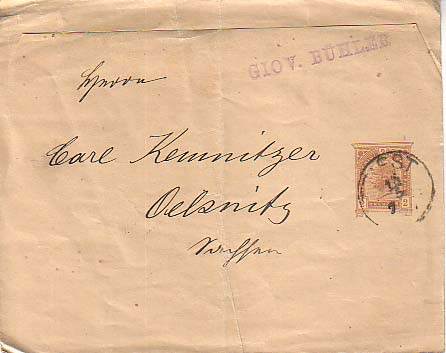 GIOV. BUHLER
Herrn
Carl Kemnitzer
Oelsnitz
Sachsen
EST